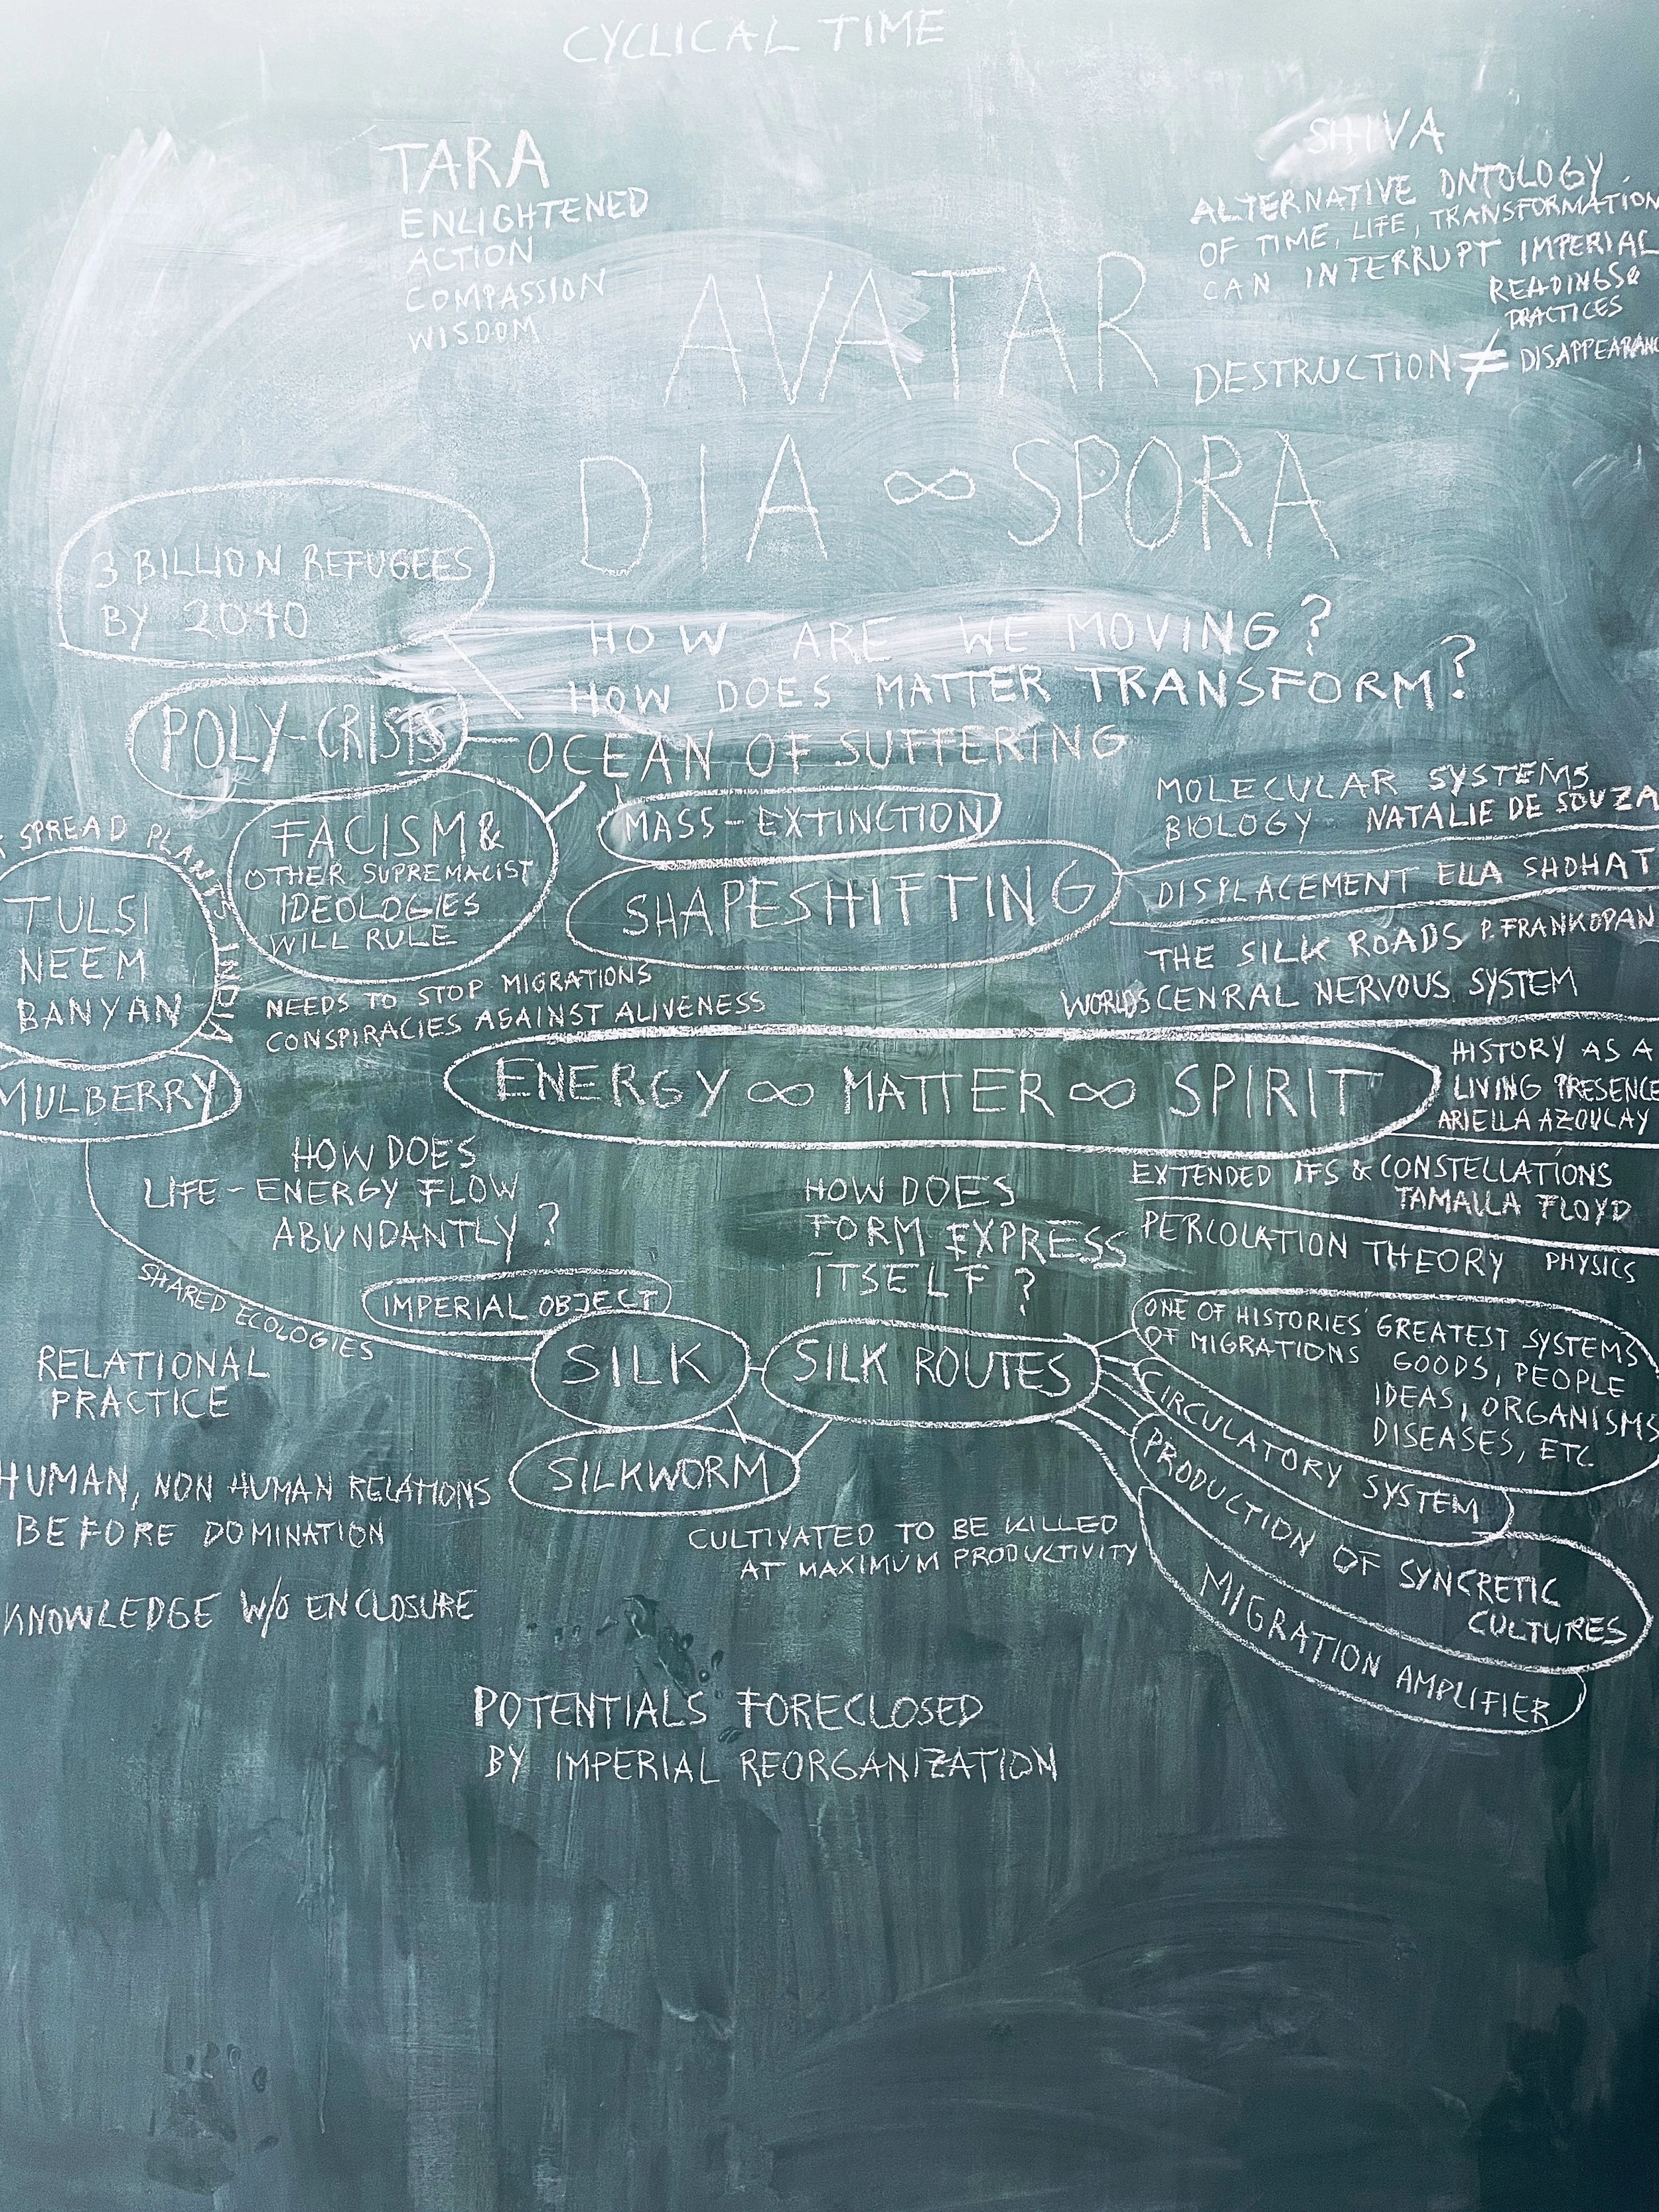 CYCLICAL TIME
TARA
ENLIGHTENED
ACTION
COMPASSION
WISDOM
SHIVA
ALTERNATIVE ONTOLOGY
OF TIME, LIFE, TRANSFORMATION
CAN INTERRUPT IMPERIAL
READINGS &
PRACTICES
DESTRUCTION ≠ DISAPPEARANC
AVATAR
DIA ∞ SPORA
3 BILLION REFUGEES
BY 2040
HOW ARE WE MOVING?
HOW DOES MATTER TRANSFORM?
POLY-CRISIS
OCEAN OF SUFFERING
FACISM &
OTHER SUPREMACIST
IDEOLOGIES
WILL RULE
MASS-EXTINCTION
SHAPESHIFTING
MOLECULAR SYSTEMS
BIOLOGY NATALIE DE SOUZA
DISPLACEMENT ELLA SHOHAT
THE SILK ROADS P. FRANKOPAN
WORLDS CENRAL NERVOUS SYSTEM
SPREAD PLANTS INDIA
TULSI
NEEM
BANYAN
MULBERRY
NEEDS TO STOP MIGRATIONS
CONSPIRACIES AGAINST ALIVENESS
ENERGY ∞ MATTER ∞ SPIRIT
HISTORY AS A
LIVING PRESENCE
ARIELLA AZOULAY
HOW DOES
LIFE-ENERGY FLOW
ABUNDANTLY?
HOW DOES
FORM EXPRESS
ITSELF?
EXTENDED IFS & CONSTELLATIONS
TAMALLA FLOYD
PERCOLATION THEORY PHYSICS
SHARED ECOLOGIES
IMPERIAL OBJECT
SILK
SILK ROUTES
SILKWORM
ONE OF HISTORIES' GREATEST SYSTEMS
OF MIGRATIONS GOODS, PEOPLE
IDEAS, ORGANISMS
DISEASES, ETC.
CIRCULATORY SYSTEM
PRODUCTION OF SYNCRETIC
CULTURES
MIGRATION AMPLIFIER
RELATIONAL
PRACTICE
HUMAN, NON HUMAN RELATIONS
BEFORE DOMINATION
CULTIVATED TO BE KILLED
AT MAXIMUM PRODUCTIVITY
KNOWLEDGE W/O ENCLOSURE
POTENTIALS FORECLOSED
BY IMPERIAL REORGANIZATION